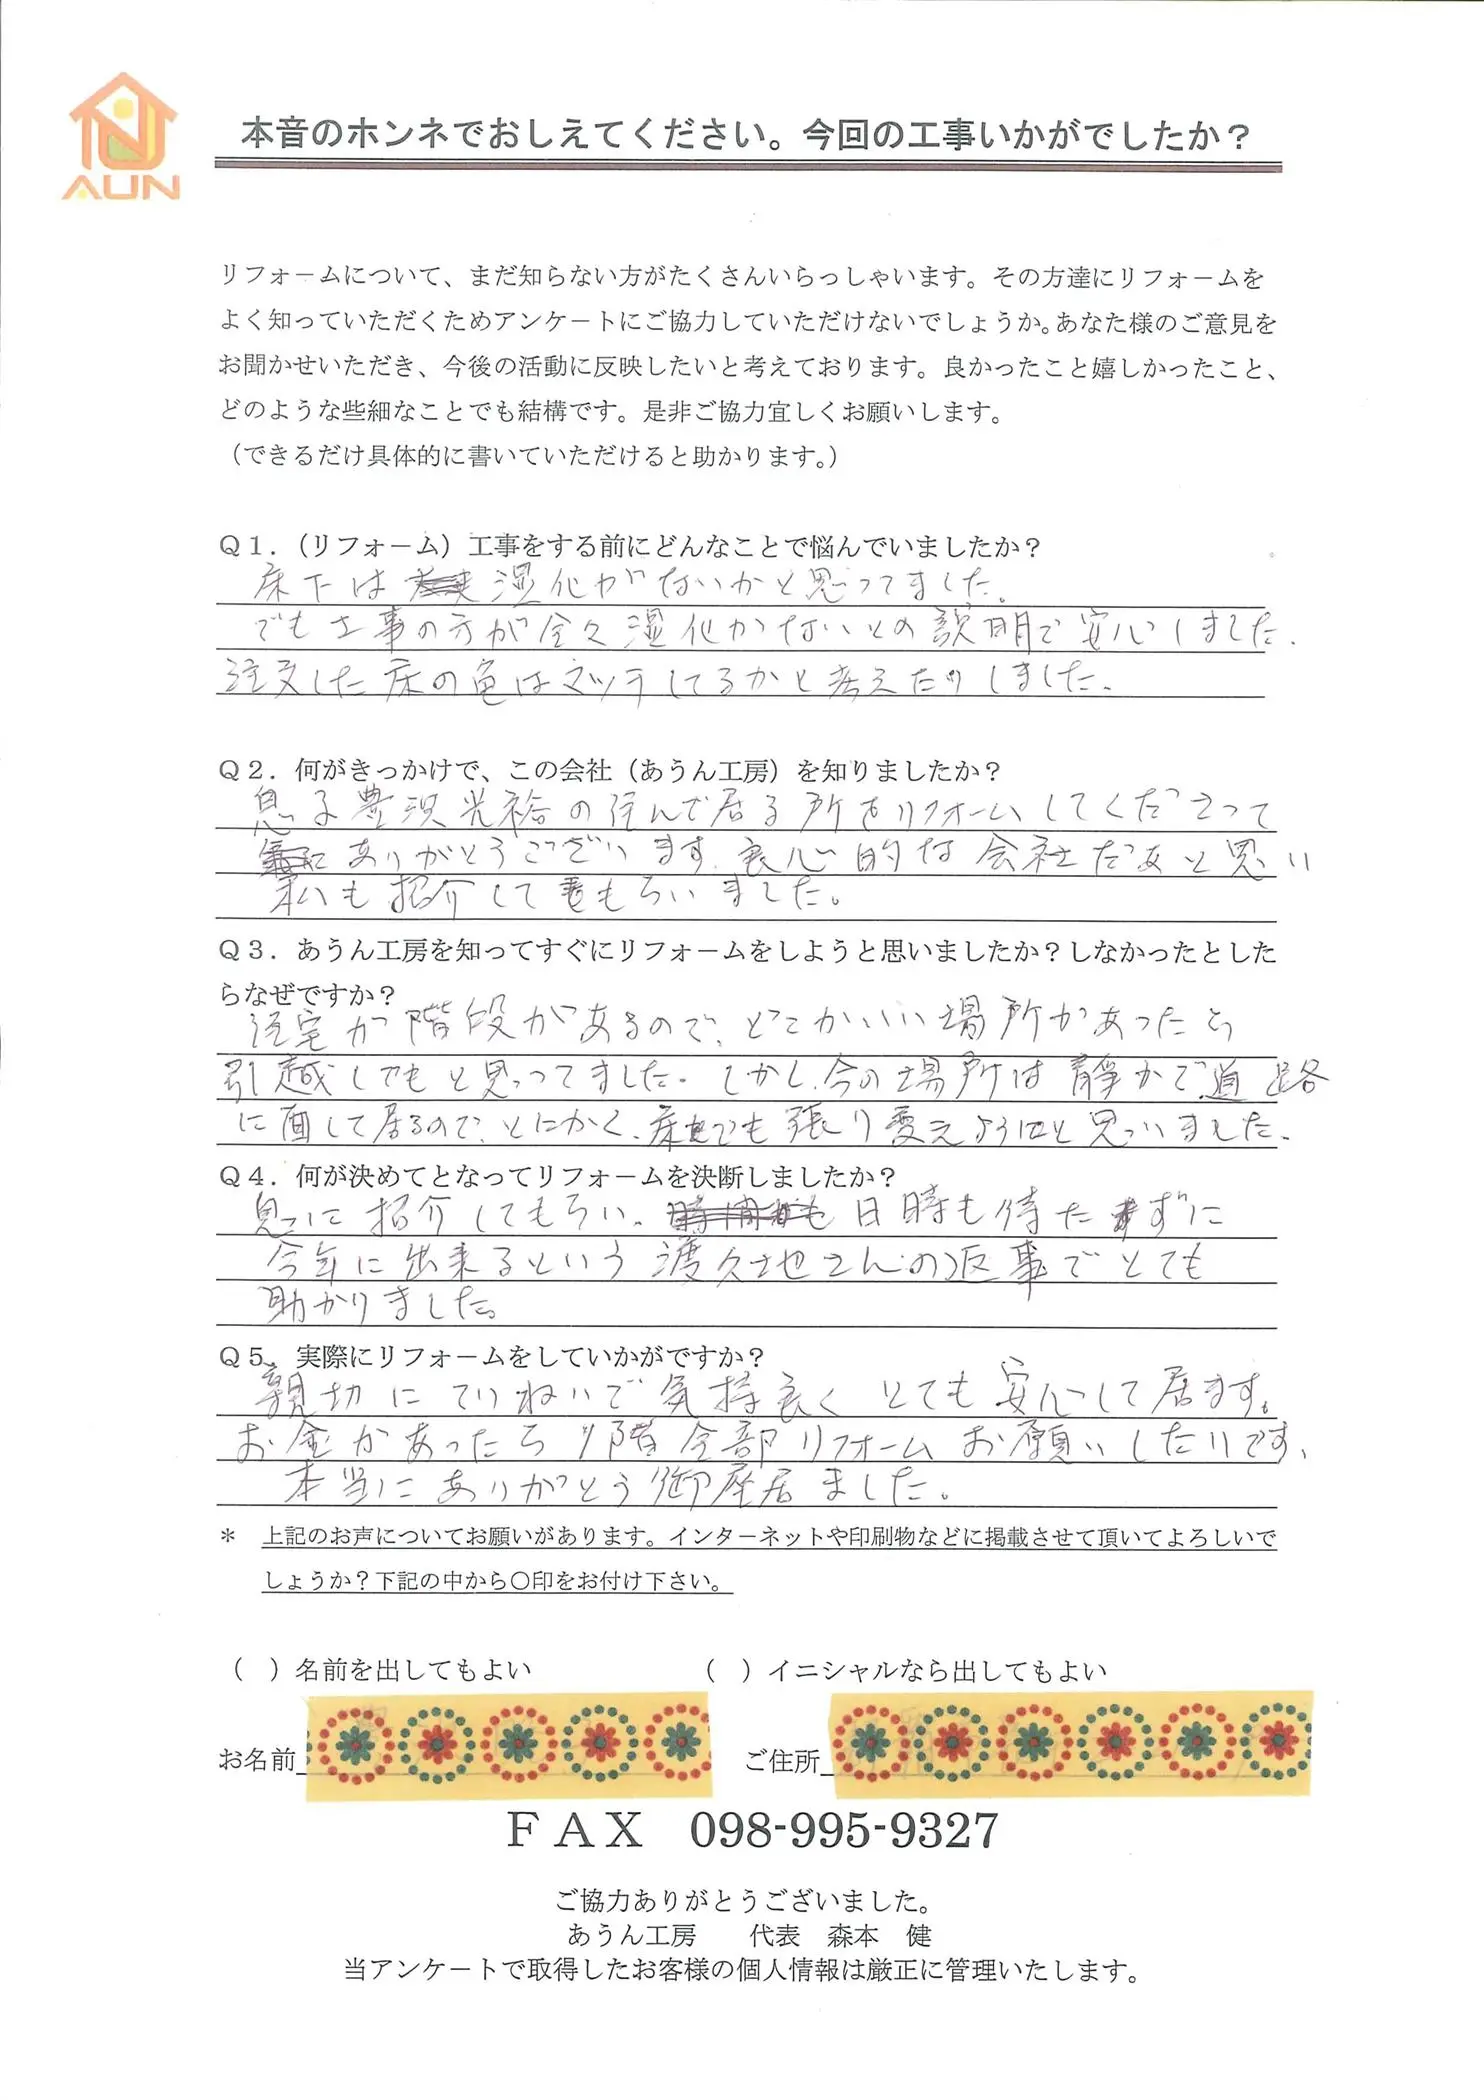 AUN
本音のホンネでおしえてください。今回の工事いかがでしたか？
リフォームについて、まだ知らない方がたくさんいらっしゃいます。その方達にリフォームを
よく知っていただくためアンケートにご協力していただけないでしょうか。あなた様のご意見を
お聞かせいただき、今後の活動に反映したいと考えております。良かったこと嬉しかったこと、
どのような些細なことでも結構です。是非ご協力宜しくお願いします。
（できるだけ具体的に書いていただけると助かります。）
Ｑ１．（リフォーム）工事をする前にどんなことで悩んでいましたか？
床下は湿化がないかと思ってました。
でも工事の方が全々湿化がないとの説明で安心しました。
注文した床の色はマッチしてるかと考えたりしました。
Ｑ２．何がきっかけで、この会社（あうん工房）を知りましたか？
息子豊沢光裕の住んで居る所をリフォームしてくださって
ありがとうございます。良心的な会社だなあと思い
私も紹介してもらいました。
Ｑ３．あうん工房を知ってすぐにリフォームをしようと思いましたか？しなかったとした
らなぜですか？
住宅が階段があるので、どこかいい場所があったら
引越しでもと思ってました。しかし、今の場所は静かで道路
に面して居るので、とにかく、床でも張り変えようと思いました。
Ｑ４．何が決めてとなってリフォームを決断しましたか？
息子に紹介してもらい、日時も待たずに
今年に出来るという渡久地さんの返事でとても
助かりました。
Ｑ５．実際にリフォームをしていかがですか？
親切にていねいで気持良くとても安心して居ます。
お金があったら１階全部リフォームお願いしたいです、
本当にありがとう御座居ました。
＊　上記のお声についてお願いがあります。インターネットや印刷物などに掲載させて頂いてよろしいで
しょうか？下記の中から○印をお付け下さい。
（　）名前を出してもよい　（　）イニシャルなら出してもよい
お名前　ご住所
ＦＡＸ　098-995-9327
ご協力ありがとうございました。
あうん工房　代表　森本　健
当アンケートで取得したお客様の個人情報は厳正に管理いたします。